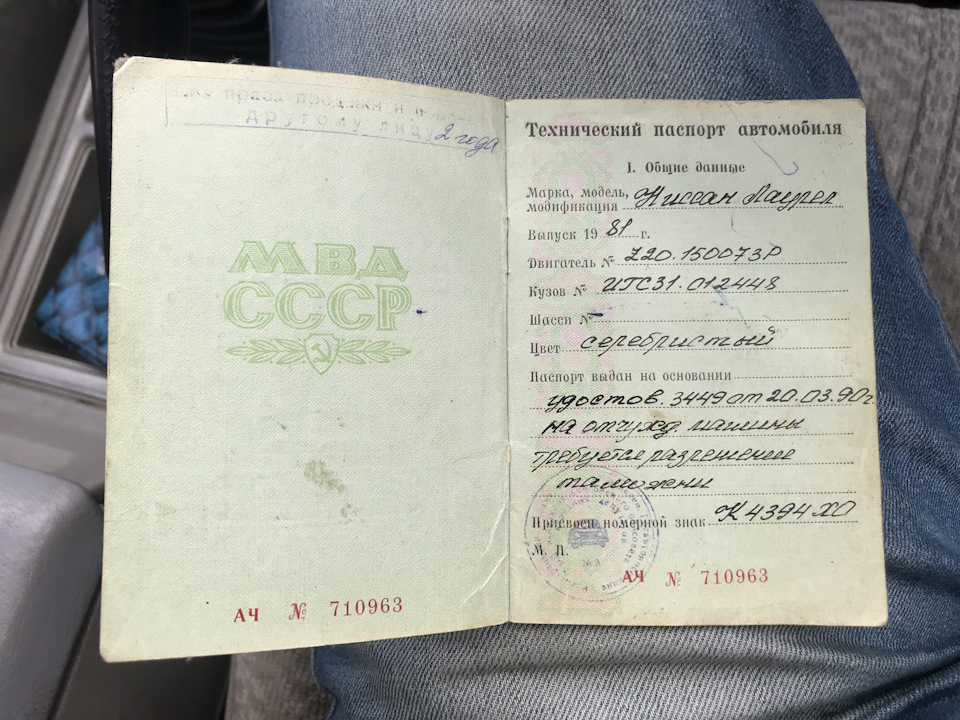 права продажи и
другому лицу 2 года
МВД
СССР
АЧ № 710963
Технический паспорт автомобиля
I. Общие данные
Марка, модель,
модификация Ниссан Лаурел
Выпуск 19 81 г.
Двигатель № Z20.150073Р
Кузов № ИГС31.012448
Шасси № –
Цвет серебристый
Паспорт выдан на основании
удостов. 3449 от 20.03.90г.
на отчужд. машины
требуется разрешение
таможни
Присвоен номерной знак К 4394 ХО
М. П.
АЧ № 710963